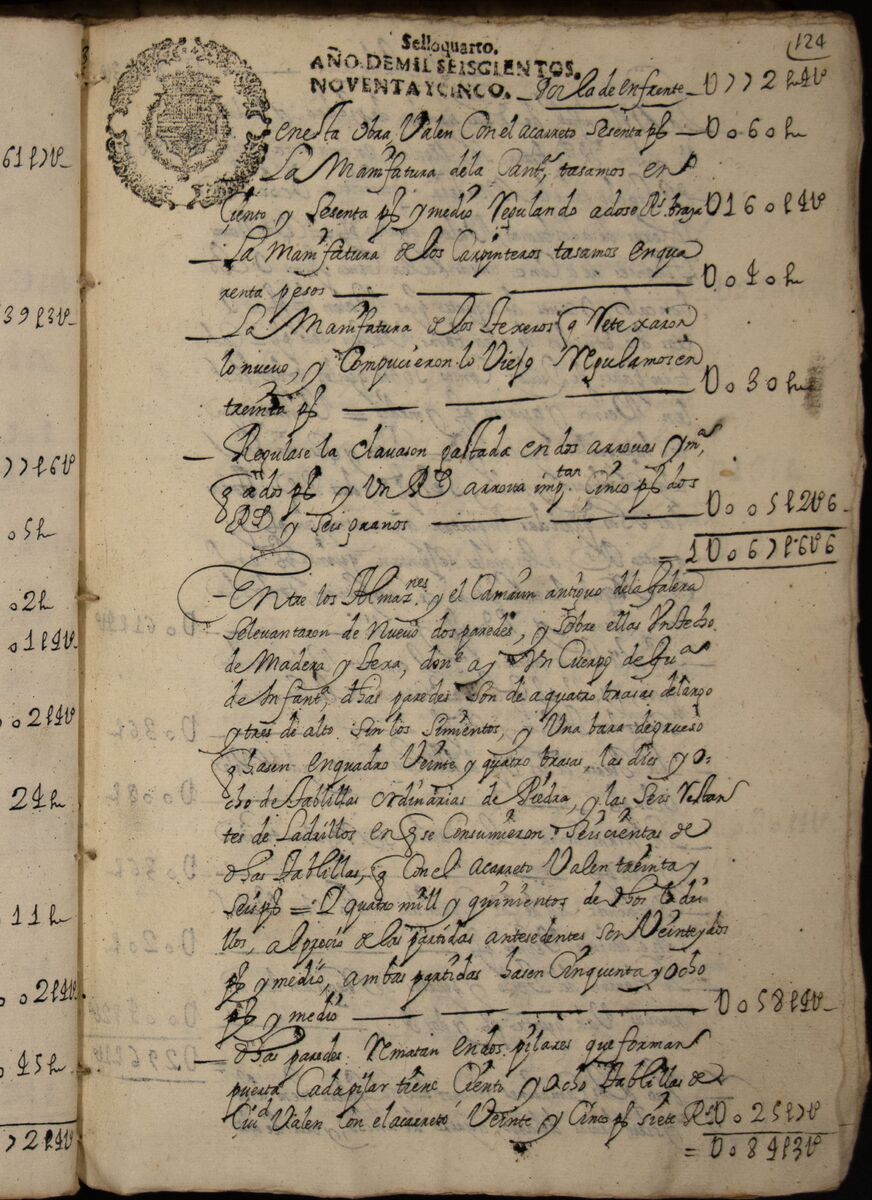 124
Selloquarto.
AÑO DE MIL SEISCIENTOS.
NOVENTA Y CINCO. — Por la de enfrente — U772 p 4 U
en esta obra, Valen Con el acarreto sesenta ps — U060 p
La Manufatura dela Cant.ª tasamos en
Ciento y sesenta ps y medio Regulando a dose Rs braza U160 p 4 U
— La manufatura de los Carpinteros tasamos en qua
renta pesos — — — U040 p
— La Manufatura de los texeros q Retexaron
lo nuevo, y Compucieron lo Viejo Regulamos en
treinta ps — — — U030 p
— Regulase la clavason gastada en dos arrovas y m.ª
q a dos ps y Un Rl arrova imp.tan Cinco ps dos
Rs y seis granos — — — U005 p 2 U 6
= 1U067 p 6 U 6
— Entre los Almaz.nes y el Camarin antiguo dela Galera
Selevantaron de Nuevo dos paredes, y sobre ellas Un techo
de Madera y texa, don.e ay Un Cuerpo de Gu.ª
de Infant.ª dhas paredes son de a quatro brasas de largo
y tres de alto. sin los simientos, y Una bara de grueso
q hasen en quadro Veinte y quatro brasas, las dies y o-
cho de tablillas ordinarias de Piedra, y las seis Restan
tes de Ladrillos en q se Consumieron seiscientas de
dhas tablillas, q Con el acarreto Valen treinta y
seis ps = Y quatro mill y quinientos de dhos ladri
llos, al precio de las partidas antesedentes son Veinte y dos
ps y medio, ambas partidas hasen Cinquenta y ocho
ps y medio — — — U058 p 4 U
— dhas paredes Rematan en dos pilares que forman
puerta Cada pilar tiene Ciento y ocho tablillas de
Ciu.d Valen con el acarreto Veinte y Cinco ps siete Rs U025 p 7 U
= U084 p 3 U